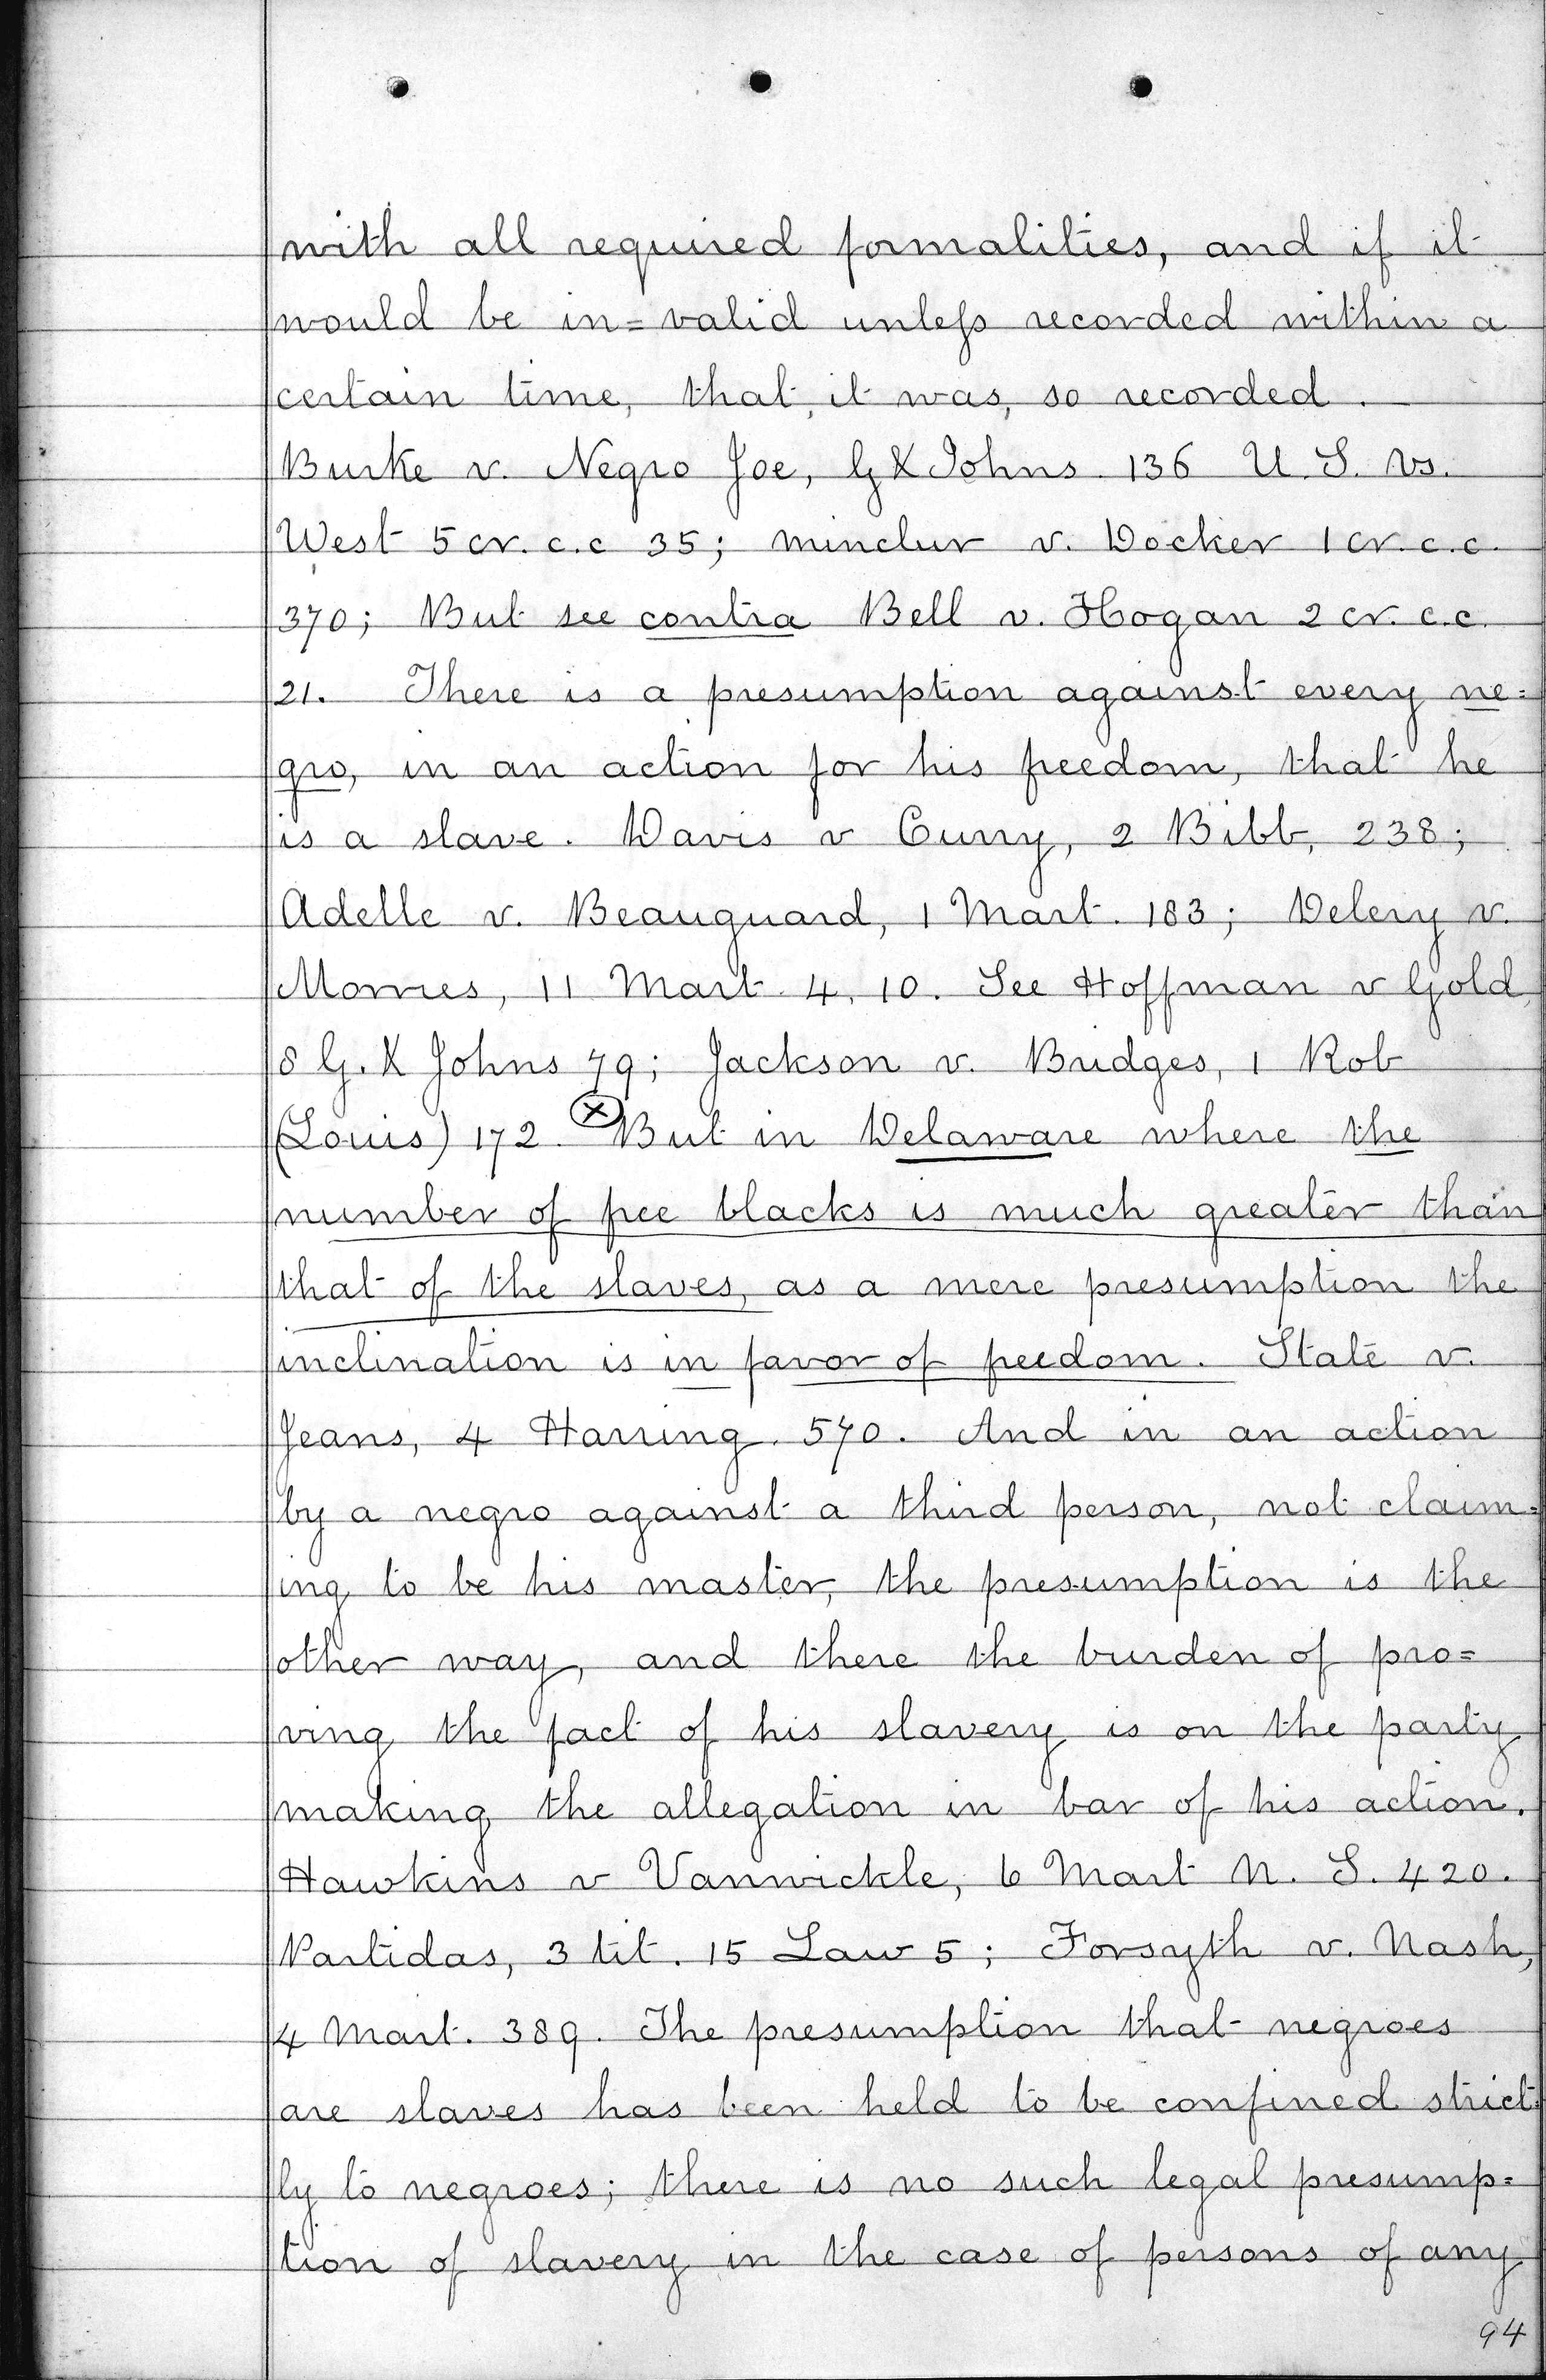 with all required formalities, and if it
would be in=valid unless recorded within a
certain time, that, it was, so recorded.
Burke v. Negro Joe, G & Johns. 136 U. S. vs.
West 5 cr. c.c 35; minchur v. Docker 1 cr. c.c.
370; But see contra Bell v. Hogan 2 cr. c.c.
21. There is a presumption against every ne=
gro, in an action for his freedom, that he
is a slave. Davis v Curry, 2 Bibb, 238;
Adelle v. Beauguard, 1 Mart. 183; Delery v.
Mornes, 11 Mart. 4, 10. See Hoffman v Gold,
8 G. & Johns 79; Jackson v. Bridges, 1 Rob
(Louis) 172. X But in Delaware where the
number of free blacks is much greater than
that of the slaves, as a mere presumption the
inclination is in favor of freedom. State v.
Jeans, 4 Harring. 570. And in an action
by a negro against a third person, not claim=
ing to be his master, the presumption is the
other way, and there the burden of pro=
ving the fact of his slavery is on the party
making the allegation in bar of his action.
Hawkins v Vanwickle, 6 Mart N. S. 420.
Partidas, 3 tit. 15 Law 5; Forsyth v. Nash,
4 Mart. 389. The presumption that negroes
are slaves has been held to be confined strict=
ly to negroes; there is no such legal presump=
tion of slavery in the case of persons of any
94